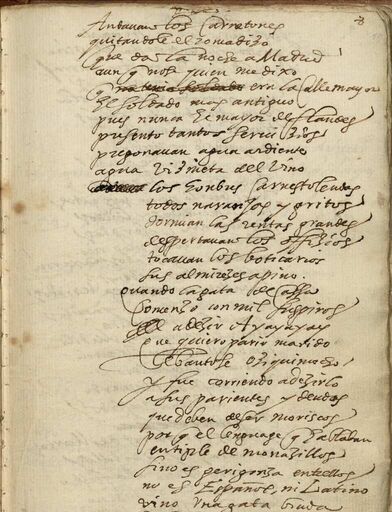 8
Andauan los Carretones
quitandole el Romadizo
que da la noche a Madrid
aunq no se quien me dixo
q era la calle mayor
El soldado mas antiguo
pues nunca el mayor de flandes
presento tantos seruicios
pregonauan agua ardiente
agua viznieta del vino
los Carnestolendas
todos naranjas y gritos
dormian las rentas grandes
despertauan los officios
tocauan los boticarios
sus almirezes a pino
quando la gata de
Començo con mil suspiros
a dezir Ayayayay
que quiero parir marido
Leuantose
y fue corriendo a dezirlo
a sus parientes y deudos
que deben de ser moriscos
por q el lenguage q hablaban
en tiple de monaçillos
sino es gerigonza entrellos
no es Español, ni Latino
vino una gata biuda